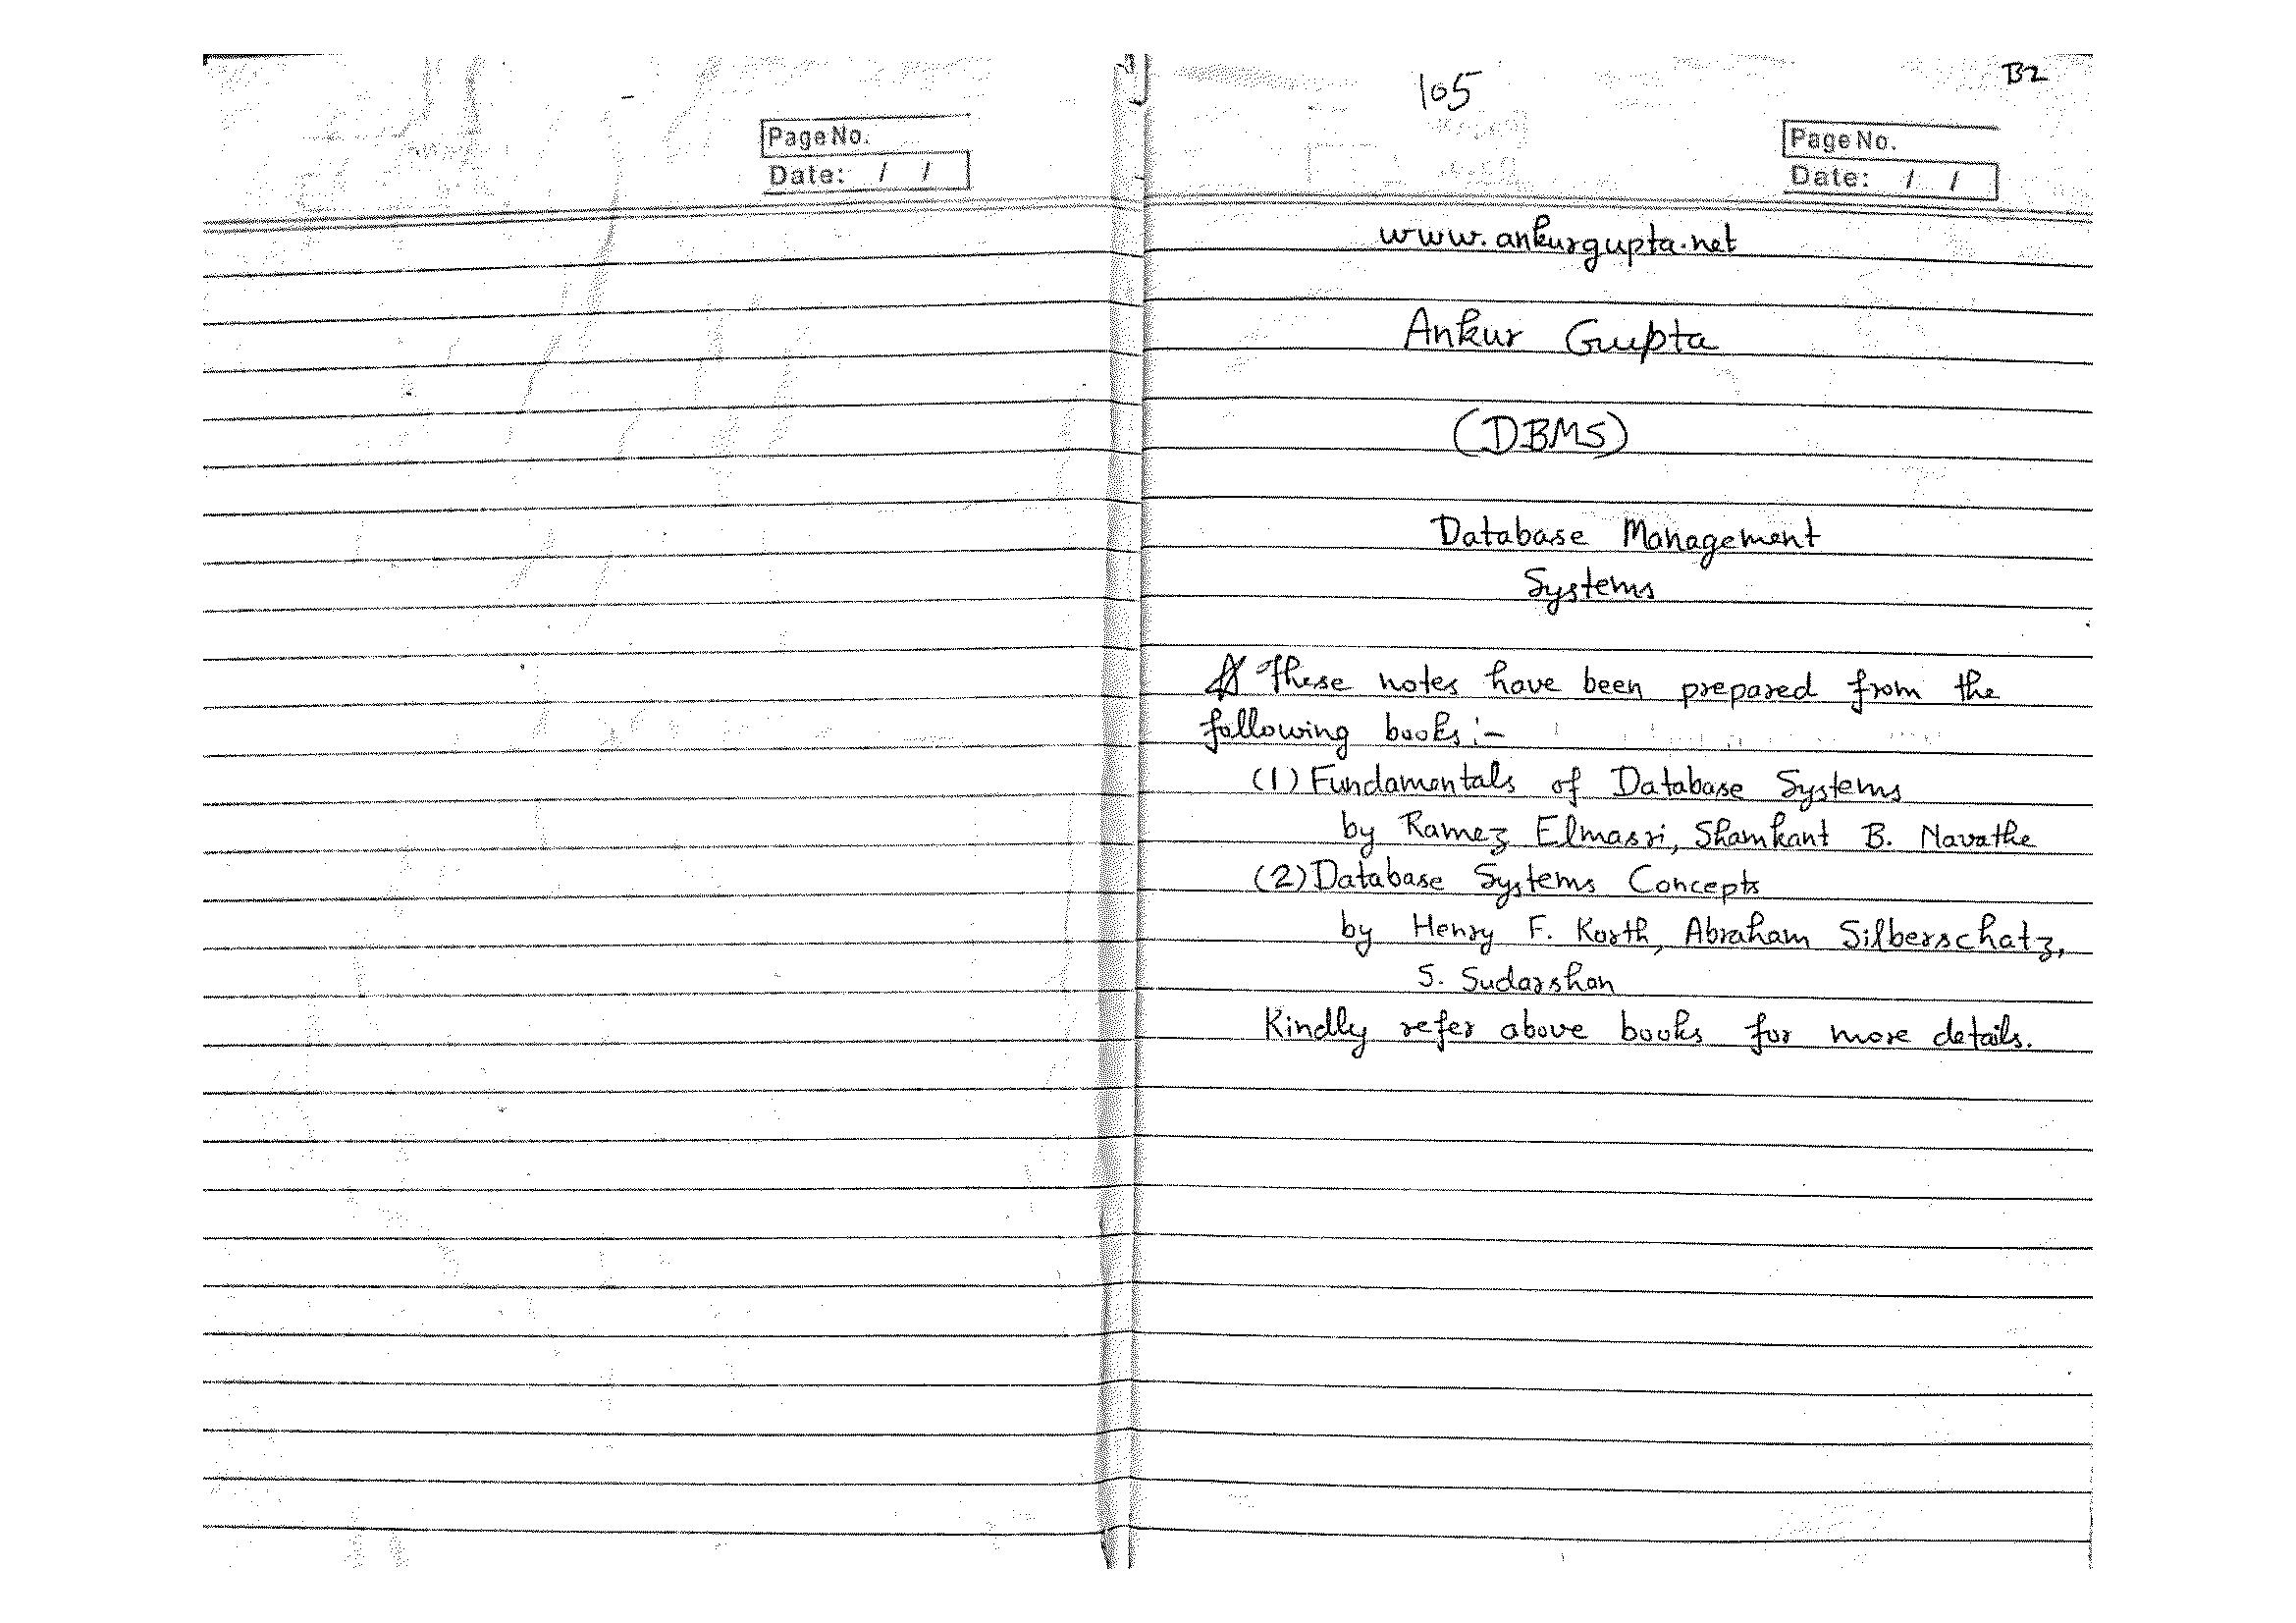 Page No.
Date: / /
105
B2
Page No.
Date: / /
www.ankurgupta.net
Ankur Gupta
(DBMS)
Database Management
Systems
These notes have been prepared from the
following books:-
(1) Fundamentals of Database Systems
by Ramez Elmasri, Shamkant B. Navathe
(2) Database Systems Concepts
by Henry F. Korth, Abraham Silberschatz,
S. Sudarshan
Kindly refer above books for more details.